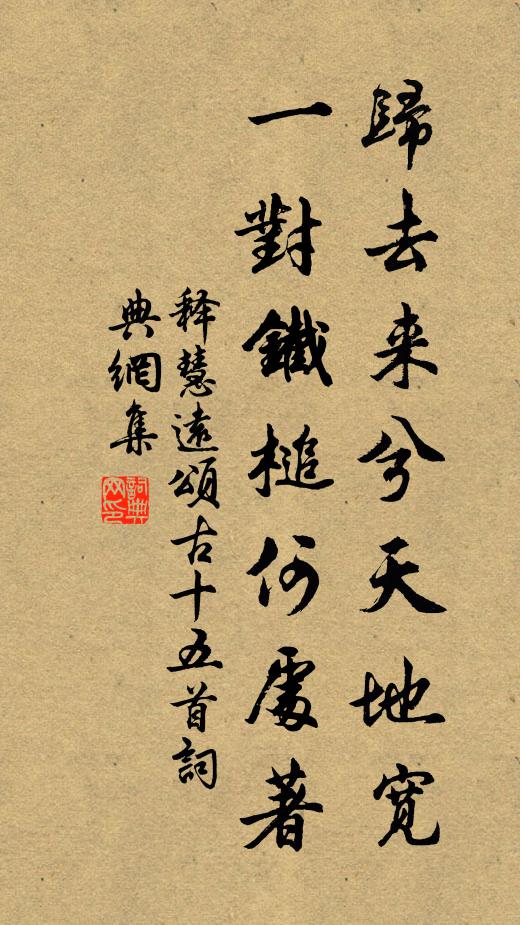 歸去来兮天地寬
一對鐵槌何處著
释慧遠頌古十五首詞
典網集
詞典
网印